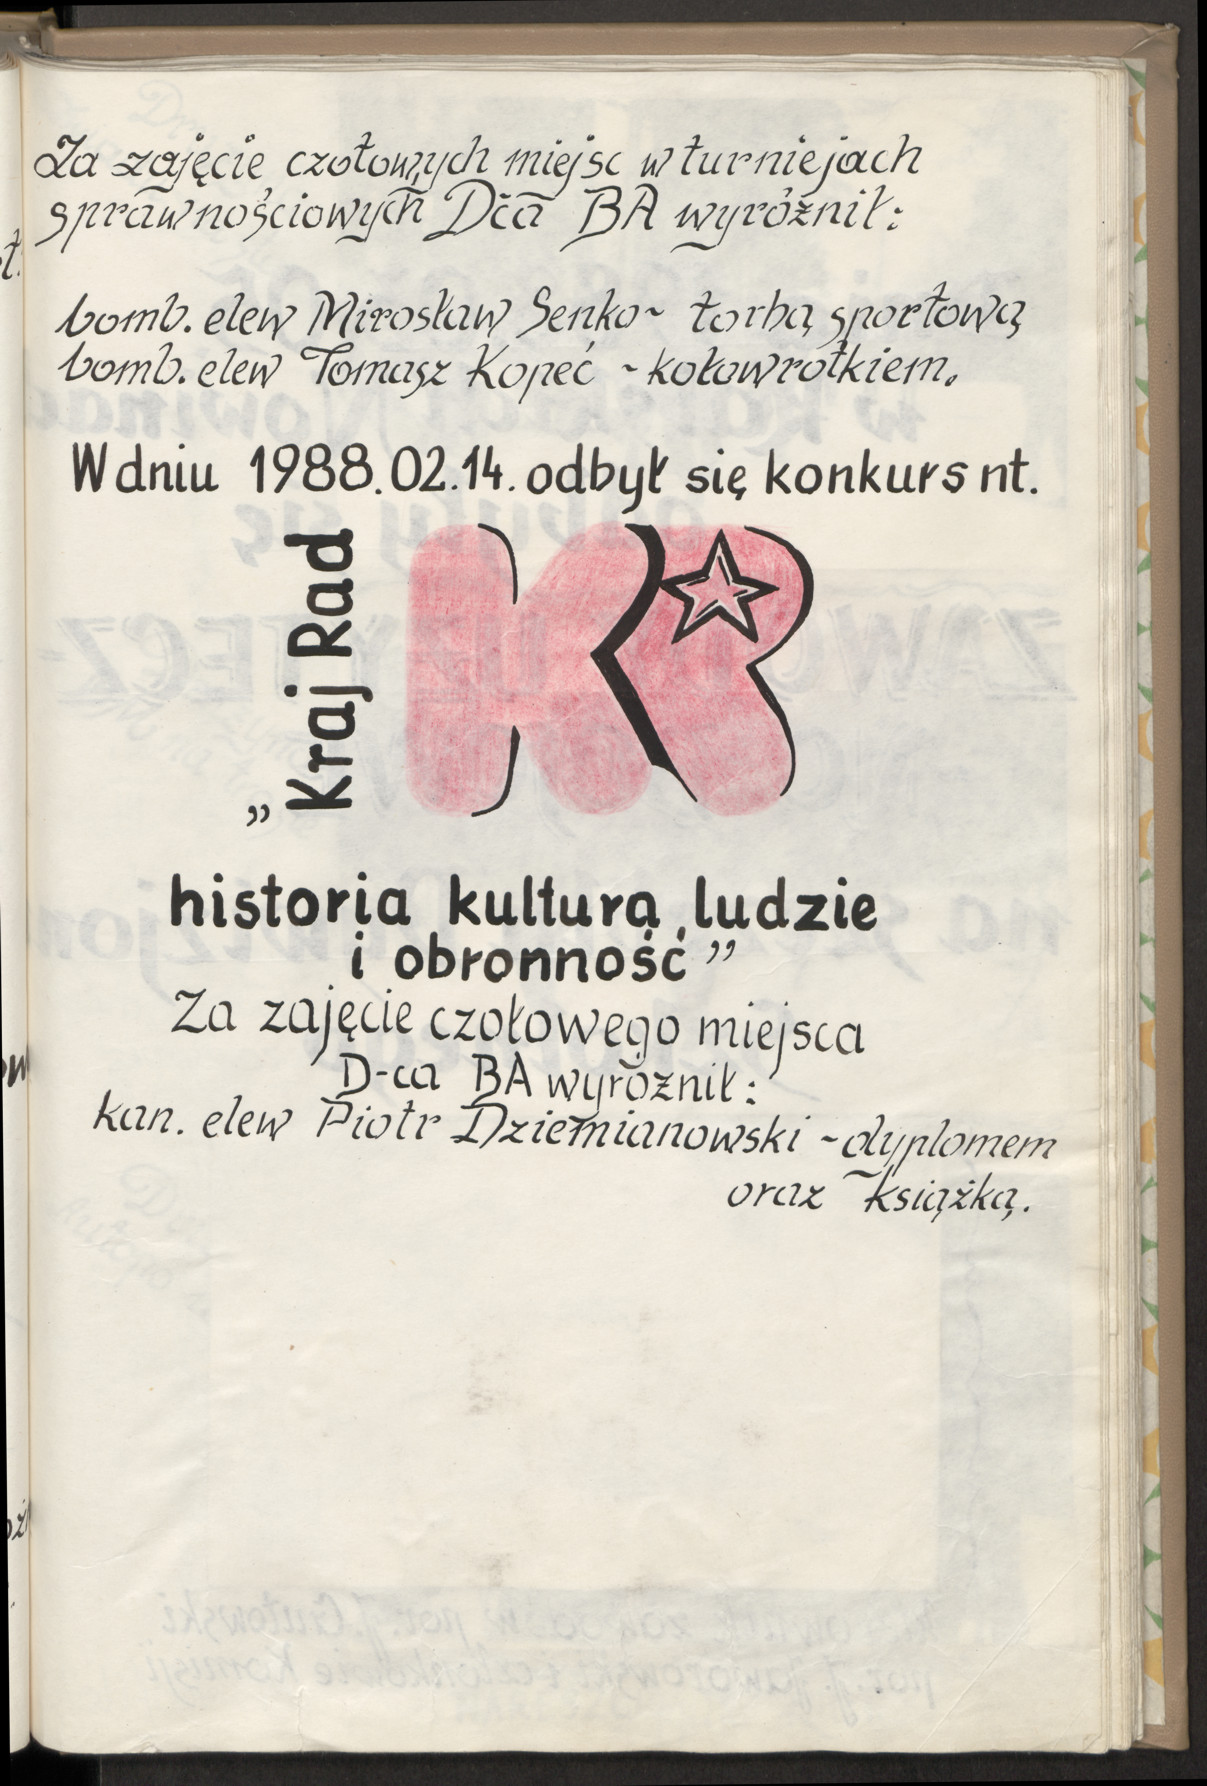 Za zajęcie czołowych miejsc w turniejach
sprawnościowych Dca BA wyróżnił:
bomb. elew Mirosław Senko~ torbą sportową
bomb. elew Tomasz Kopeć ~ kołowrotkiem.
W dniu 1988.02.14. odbył się konkurs nt.
„Kraj Rad
KR
historia kultura, ludzie
i obronność”
Za zajęcie czołowego miejsca
D-ca BA wyróżnił:
kan. elew Piotr Dziemianowski ~ dyplomem
oraz książką.